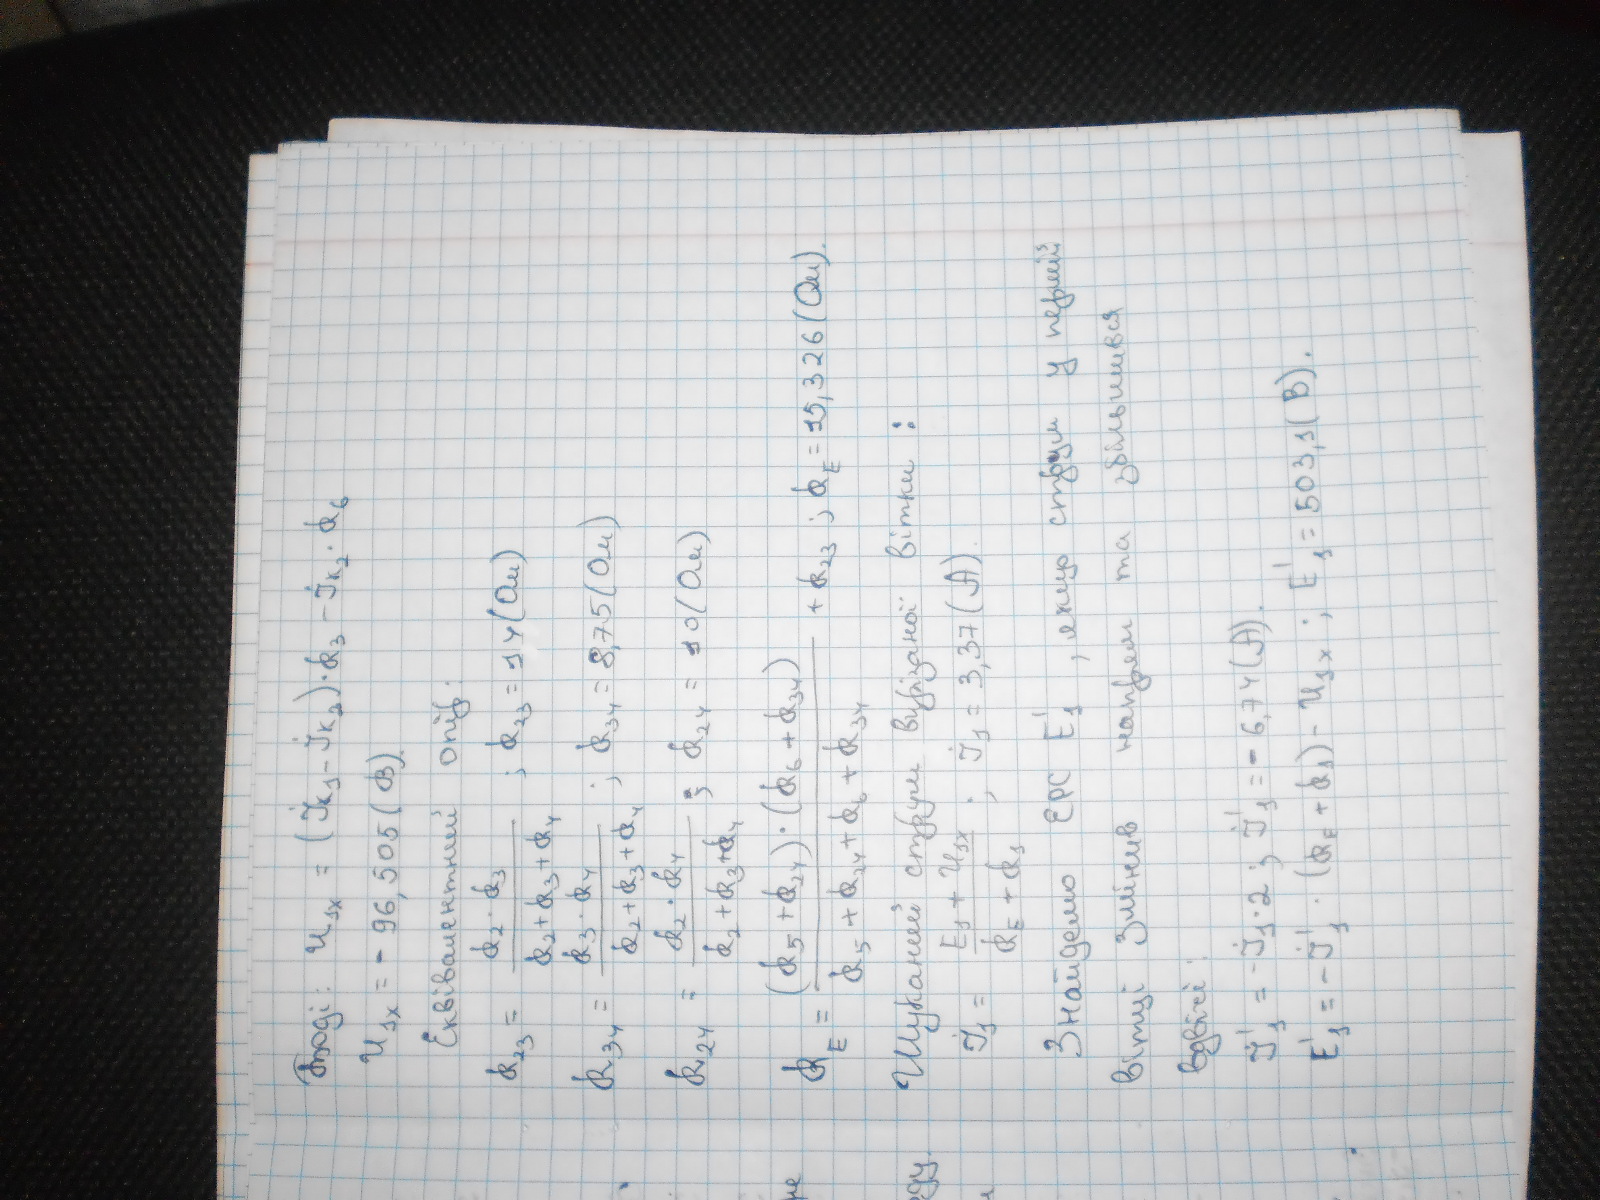 Тоді: U1x = (Iк1 - Iк2)·R3 - Iк2·R6
U1x = - 96,505 (В).
Еквівалентний опір:
R23 = R2·R3 / R2+R3+R4 ; R23 = 14 (Ом)
R34 = R3·R4 / R2+R3+R4 ; R34 = 8,75 (Ом)
R24 = R2·R4 / R2+R3+R4 ; R24 = 10 (Ом)
RE = (R5+R24)·(R6+R34) / R5+R24+R6+R34 + R23 ; RE = 25,326 (Ом).
Шуканий струм вирізаної вітки:
I1 = E1 + U1x / RE + R1 ; I1 = 3,37 (А).
Знайдемо ЕРС E'1, якщо струм у першій
вітці змінив напрям та збільшився
вдвічі:
I'1 = -I1·2 ; I'1 = - 6,74 (А).
E'1 = -I'1·(RE + R1) - U1x ; E'1 = 503,1 (В).